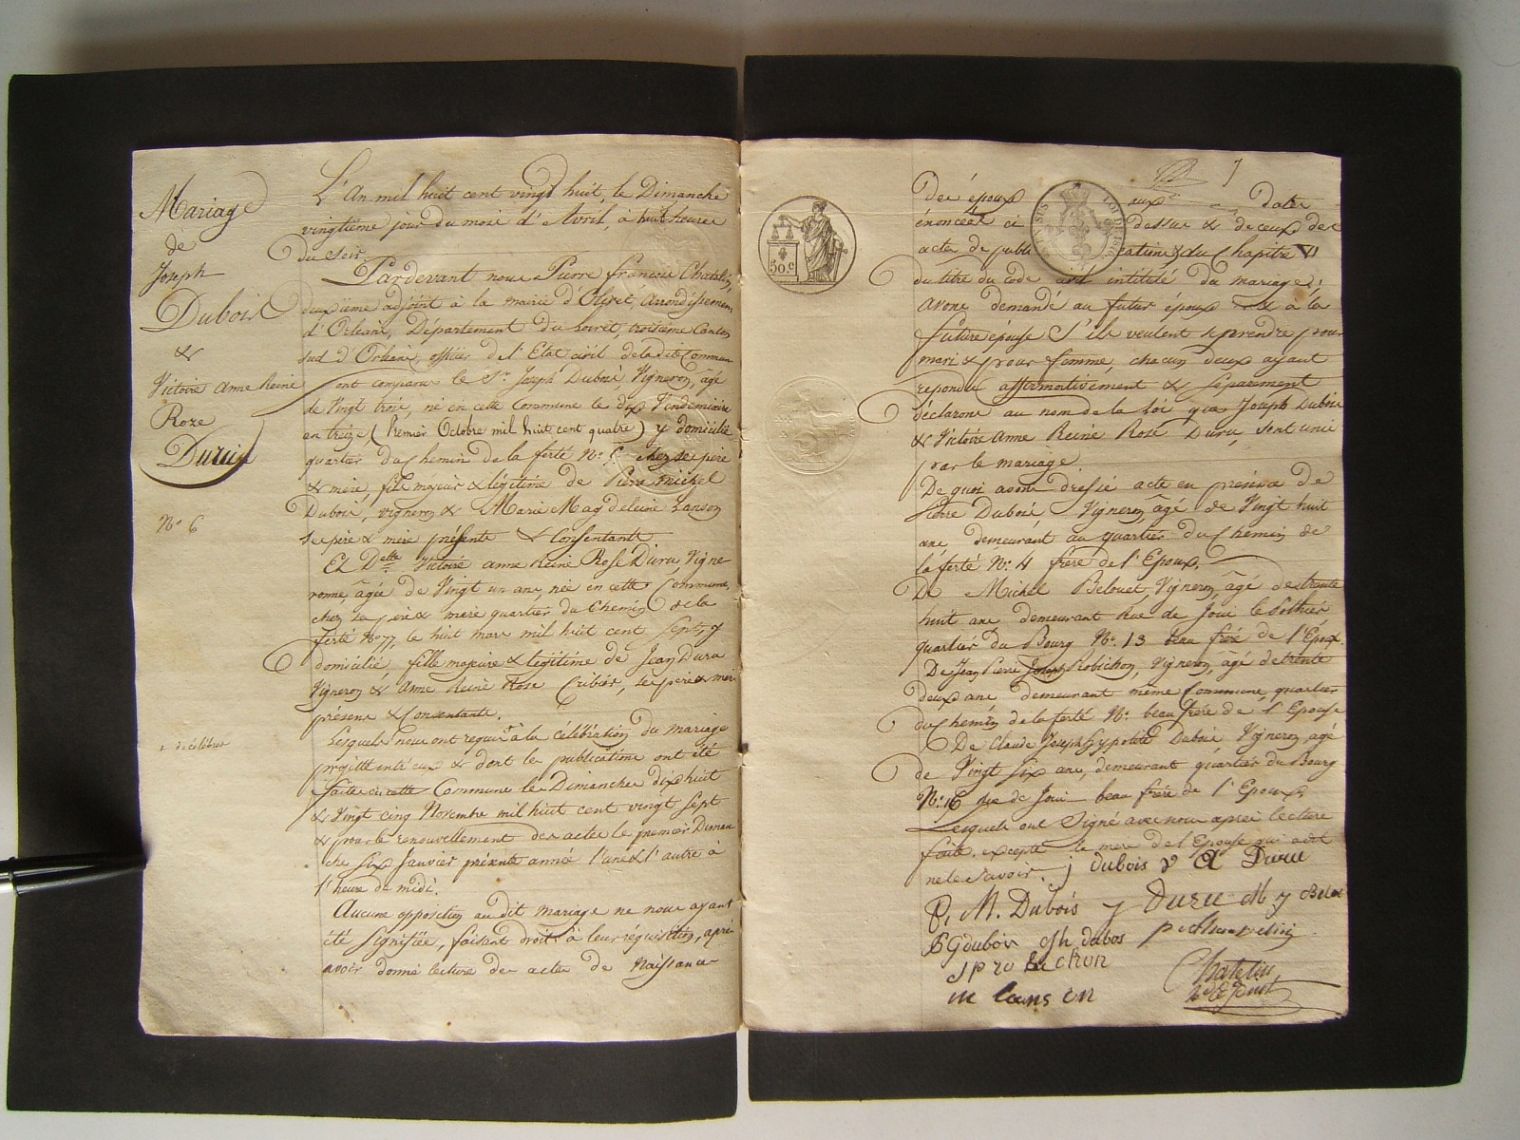 Mariage
de
Joseph
Dubois
&
Victoire Anne Reine
Roze
Duru
N° 6
L'An mil huit cent vingt huit, le Dimanche
vingtième jour du mois d'Avril, à huit heures
Du soir
Pardevant nous Pierre françois Chatelin,
deuxième adjoint à la mairie d'Olivet, arrondissement
d'Orléans, Département du Loiret troisième Canton
sud d'Orléans, officier de l'Etat civil de la dite Commune
ont comparu le Sr. Joseph Dubois Vigneron, âgé
de Vingt trois, né en cette Commune le dix Vendemiaire
en treize (Premier Octobre mil huit cent quatre) y domicilié
quartier du Chemin de la ferté N° chez ses père
& mère, fils majeur & légitime de Pierre michel
Dubois, vigneron & Marie Magdeleine Lanson
ses père & mère présents & Consentants
Et Delle Victoire anne Reine Rose Duru, Vigne
ronne, âgée de Vingt un ans, née en cette Commune,
chez ses père & mere quartier du Chemin de la
ferté N° 77, le huit mars mil huit cent Sept, y
domiciliée fille majeure & légitime de Jean Duru
Vigneron & Anne Reine Rose Cribier, ses père & mère
présens & Consentants.
Lesquels nous ont requis à la célébration du mariage
projetté entr'eux & dont les publications ont été
faites en cette Commune les Dimanches dix huit
& Vingt cinq Novembre mil huit cent vingt Sept
& pour le renouvellement des actes le premier Diman
che Six Janvier présente année l'une & l'autre à
l'heure de midi.
Aucune opposition au dit mariage ne nous ayant
été Signifiée, faisant droit à leur réquisition, après
avoir donné lecture des actes de Naissance
7
50 c
Des époux aux dates
énoncées ci dessus & de ceux des
actes de publications & du Chapitre VI
du titre du code civil intitulé du mariage;
avons demandé au futur époux & à la
future épouse S'ils veulent se prendre pour
mari & pour femme, chacun d'eux ayant
répondu affirmativement & séparement
déclarons au nom de la loi que Joseph Dubois
& Victoire Anne Reine Rose Duru, sont unis
par le mariage.
De quoi avons dressé acte en présence de
Pierre Dubois Vigneron âgé de Vingt huit
ans demeurant au quartier du Chemin de
la ferté N° 4 frère de l'Epoux,
De Michel Belouet, Vigneron, âgé de trente
huit ans demeurant Rue de Joui le Pothier
quartier du Bourg N° 13 beau frère de l'Epoux
De Jean Pierre Robichon, Vigneron, âgé de trente
deux ans demeurant même Commune quartier
du Chemin de la ferté N° beau frère de l'Epouse
De Claude Joseph hypolite Dubois Vigneron âgé
de Vingt Six ans, demeurant quartier du Bourg
N° 16 rue de Joui beau frère de l'Epoux,
Lesquels ont Signé avec nous après lecture
faite. excepté la mère de l'Epouse qui a dit
ne le Savoir. j dubois v a Duru
P. M. Dubois j Duru M
dubois Jh dubos
J P ro bichon
m lans on
Chatelin